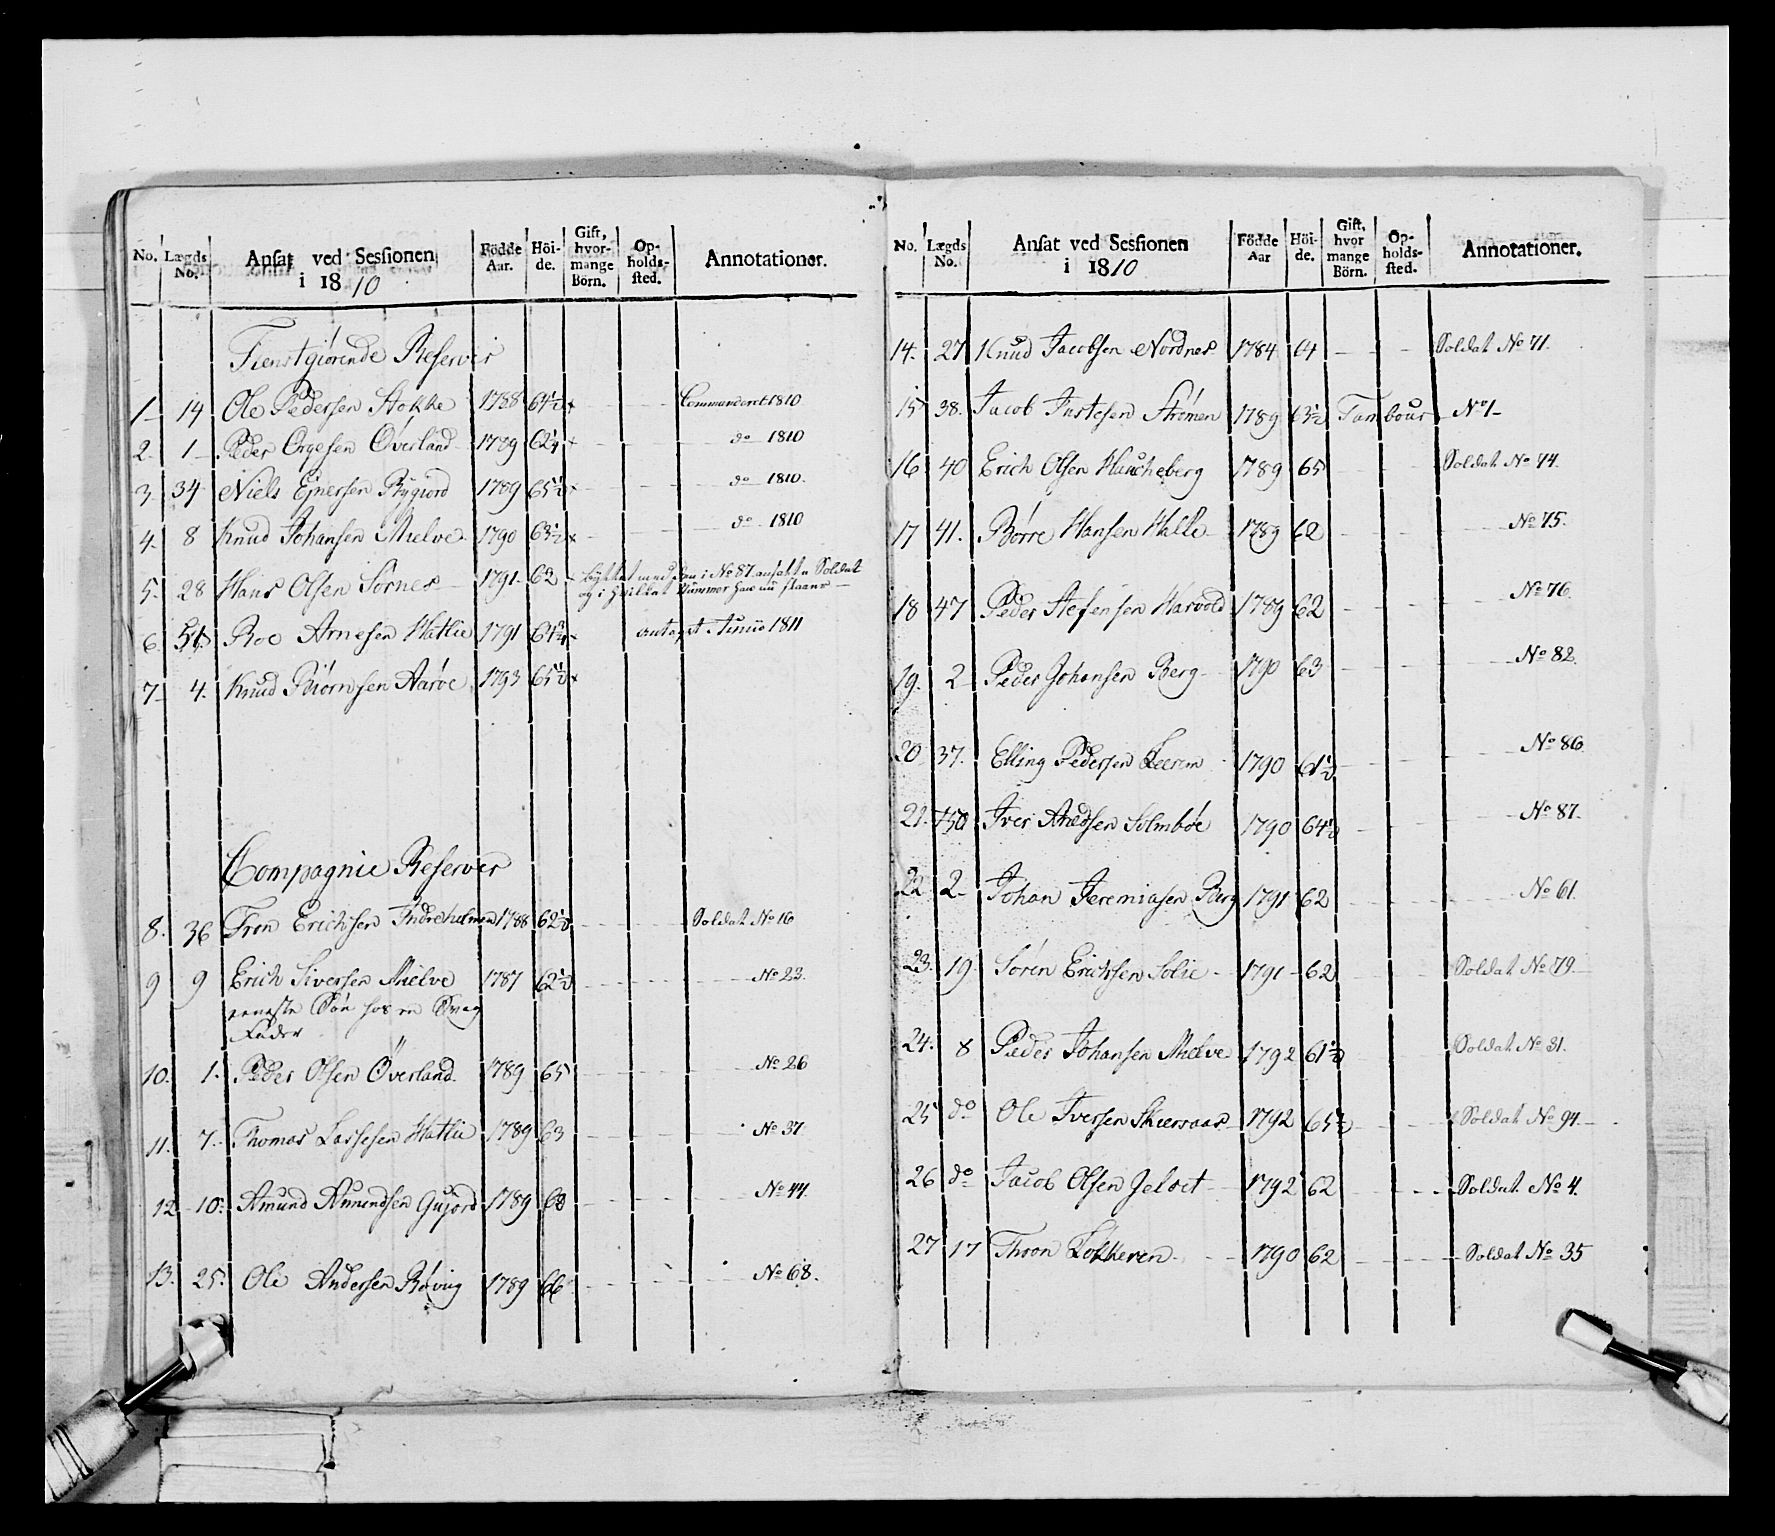 No. Lægds No. Ansat ved Sessionen i 1810 Födde Aar. Höide. Gift, hvormange Börn. Opholdssted. Annotationer.
Tienstgiørende Reserver
1 14 Ole Pedersen Stokke 1788 64½ x Commanderet 1810
2. 1 Peder Orgesen Øverland 1789 62¼ x do 1810
3. 34 Niels Ejnersen Rygiord 1789 65½ x do 1810.
4. 8 Knud Johansen Mielve 1790 63½ x do 1810
5. 28 Hans Olsen Sørnes 1791 62 byttet med den i No 87 ansatte Soldat
og i hvilket Nummer han nu staaer
6. 51 Roe Arnesen Hatlie 1791 61¾ antaget Junio 1811
7 4. Knud Biørnsen Aarøe 1793 65½ x
Compagnie Reserver
8. 36 Tron Erichsen Indreholmen 1788 62½ Soldat No 16
9 9 Erich Siversen Mielve 1787 62½ No 23.
eeneste Søn hos en Svag
Fader
10. 1. Peder Olsen Överland 1789 65 No 26
11. 7. Thomas Lassesen Hatlie 1789 63 No 37
12 10. Amund Amundsen Gujord 1789 68 No 44
13. 25. Ole Andersen Røvig 1789 66 No 68.
No. Lægds No. Ansat ved Sessionen i 1810 Födde Aar Höide. Gift, hvor mange Börn. Opholdssted. Annotationer.
14. 27 Knud Jacobsen Nordnes 1784 64 Soldat No 71.
15 38. Jacob Justesen Strömen 1789 63½ Tambour No 1
16 40 Erich Olsen Haucheberg 1789 65 Soldat No 74.
17 41. Børre Hansen Halle 1789 62 No 75.
18 47 Peder Stefensen Harvold 1789 62 No 76.
19. 2 Peder Johansen Berg 1790 63 No 82.
20 37. Elling Pedersen Leerem 1790 61½ No 86
21. 50 Iver Andersen Solmbøe 1790 64½ No 87.
22 2 Johan Jeremiasen Berg 1791 62 No 61.
23. 19. Søren Erichsen Solie 1791 62 Soldat No 79.
24. 8 Peder Johansen Mielve 1792 61½ Soldat No 31.
25 do Ole Iversen Skiersaas 1792 65½ Soldat No 94.
26 do Jacob Olsen Jelset 1792 62 Soldat No 4.
27 17 Thron Lokkeren 1790 62 Soldat No 35